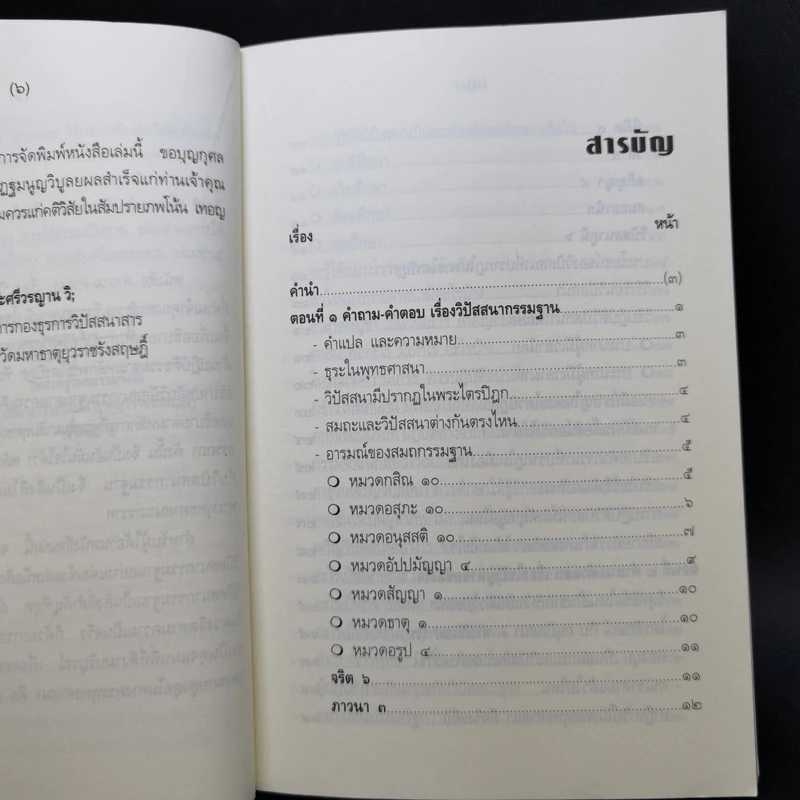 (๖)
การจัดพิมพ์หนังสือเล่มนี้ ขอบุญกุศล
ฏฐมนูญวิบูลยผลสำเร็จแก่ท่านเจ้าคุณ
มควรแก่คติวิสัยในสัมปรายภพโน้น เทอญ
ะศรีวรญาน วิ;
การกองธุรการวิปัสสนาสาร
วัดมหาธาตุยุวราชรังสฤษฎิ์
สารบัญ
เรื่อง หน้า
คำนำ (๓)
ตอนที่ ๑ คำถาม-คำตอบ เรื่องวิปัสสนากรรมฐาน ๑
- คำแปล และความหมาย ๓
- ธุระในพุทธศาสนา ๓
- วิปัสสนามีปรากฏในพระไตรปิฎก ๔
- สมถะและวิปัสสนาต่างกันตรงไหน ๔
- อารมณ์ของสมถกรรมฐาน ๕
❍ หมวดกสิณ ๑๐ ๕
❍ หมวดอสุภะ ๑๐ ๖
❍ หมวดอนุสสติ ๑๐ ๗
❍ หมวดอัปปมัญญา ๔ ๙
❍ หมวดสัญญา ๑ ๑๐
❍ หมวดธาตุ ๑ ๑๐
❍ หมวดอรูป ๔ ๑๑
จริต ๖ ๑๑
ภาวนา ๓ ๑๒